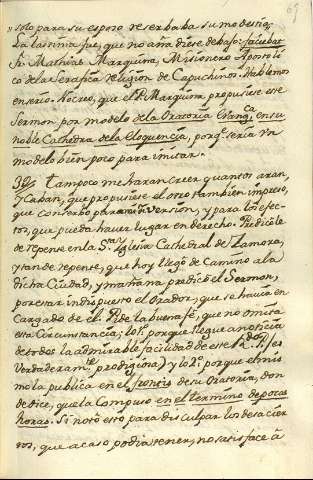 69
solo para su esposo reserbaba su modestia.
La lastima fue, que no añadiese debajo: faciebat
Fr. Mathias Marquina, Misionero Apostoli
co de la Serafica religion de Capuchinos. Hablemos
en serio. No creo, que el P. Marquina propusiese este
Sermon por modelo de la Oratoria Evangca. en su
noble Cathedra de la Eloquencia, porqe. seria un
modelo bien poco para imitar.
39 Tampoco me haran creer quantos aran,
y caban, que propusiese el otro tambien impreso,
que conserbo para mi diversion, y para los efec-
tos, que pueda haver lugar en derecho. Predicòle
de repente en la Sta. Yglesia Cathedral de Zamora,
y tan de repente, que hoy llegò de camino a la
dicha Ciudad, y mañana predicò el Sermon,
por estar indispuesto el Orador, que se havia en
cargado de el. P. de la buena fè, que no omita
esta Circunstancia; lo 1o. porque llegue a noticia
de todos la admirable facilidad de este Rdo. P. (es
verdaderamte. prodigiosa) y lo 2o. porque el mis
mo la publica en el frontis de su Oratoria, don
de dice, que la Compuso en el termino de pocas
horas. Si notò esto para disculpar los desacier
tos, que acaso podia tener, no satisface à